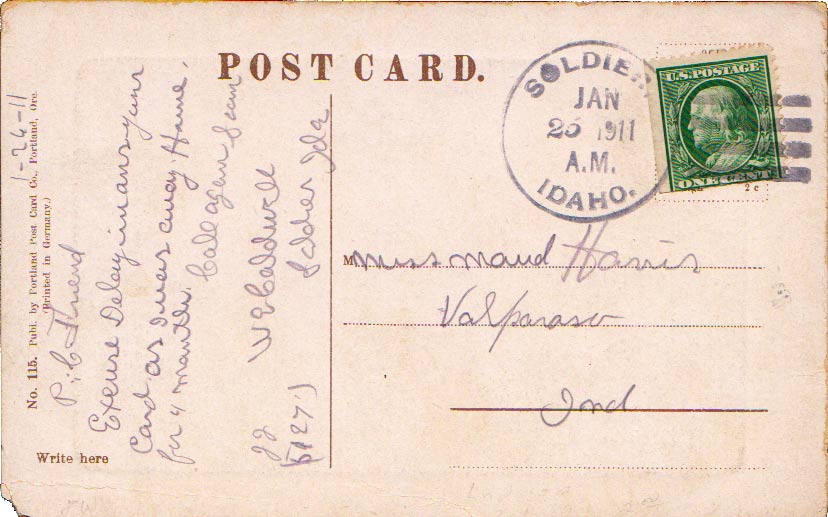 POST CARD.
SOLDIER
JAN
25 1911
A.M.
IDAHO.
U.S. POSTAGE
ONE CENT
2 c
Miss Maud Harris
Valparaso
Ind
1-26-11
No. 115. Publ. by Portland Post Card Co., Portland, Ore.
(Printed in Germany.)
P.C Friend
Excuse Delay in ans your
Card as I was away Home.
for 4 months. Call again Soon
W E Caldwell
Soldier Ida
Write here